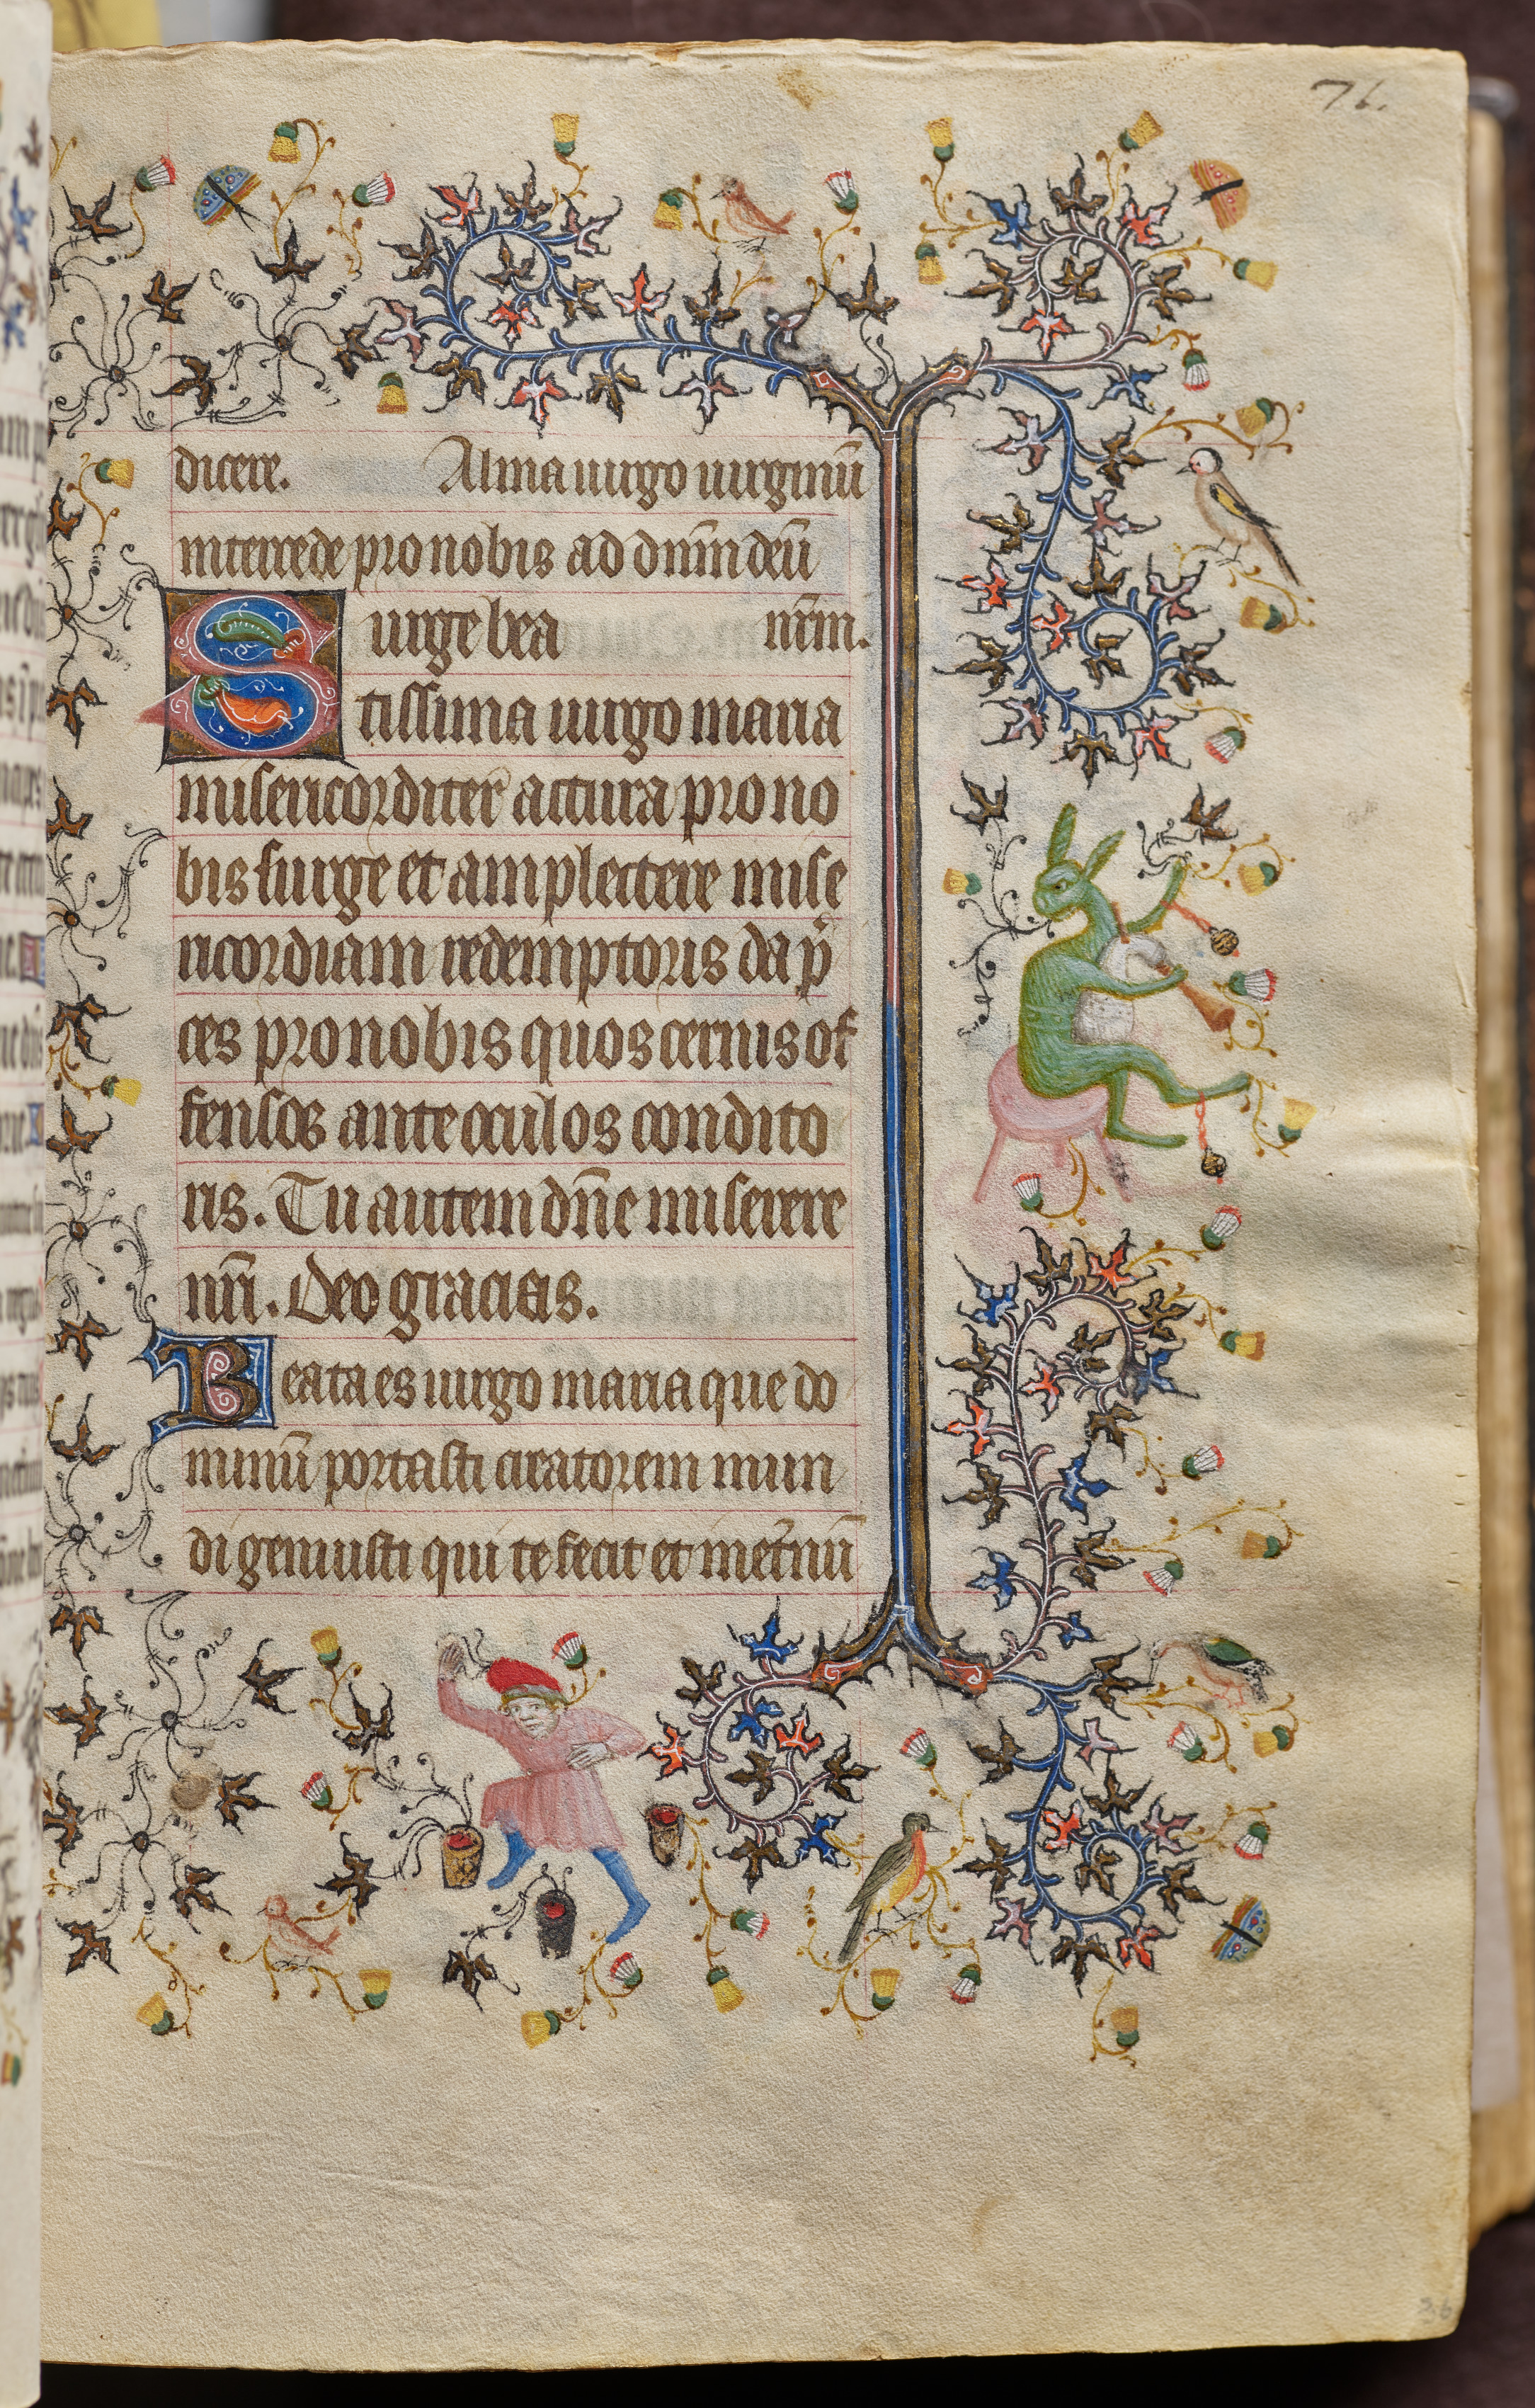 76.
dicere. Alma uirgo uirginū
intercede pro nobis ad dn̄m deū
Surge bea nr̄m.
tissima uirgo maria
misericorditer̄ actura pro no
bis surge et amplectere mise
ricordiam redemptoris da p̄
ces pro nobis quos cernis of
fensos ante oculos condito
ris. Tu autem dn̄e miserere
nr̄i. Deo gracias.
Beata es uirgo maria que do
minū portasti creatorem mun
di genuisti qui te fecit et inet̄nū
36